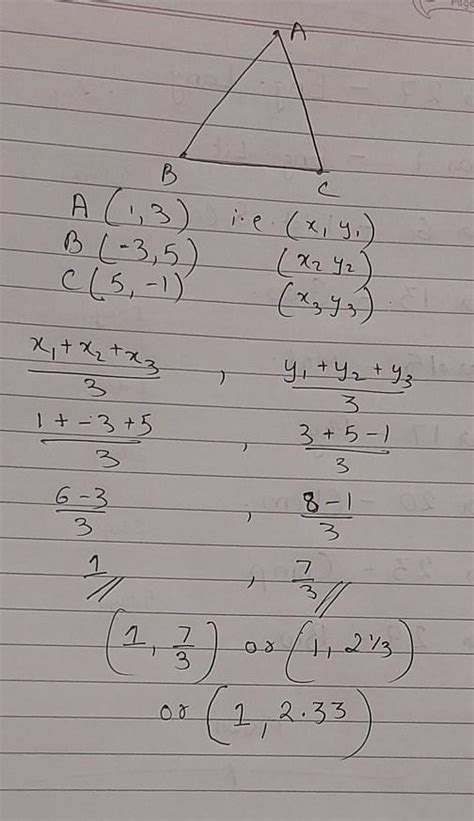 A
B
C
A (1,3) i.e. (x₁ y₁)
B (-3,5) (x₂ y₂)
C (5,-1) (x₃ y₃)
x₁+x₂+x₃/3 , y₁+y₂+y₃/3
1+-3+5/3 , 3+5-1/3
6-3/3 , 8-1/3
1 , 7/3
(1, 7/3) or (1, 2 1/3)
or (1, 2.33)